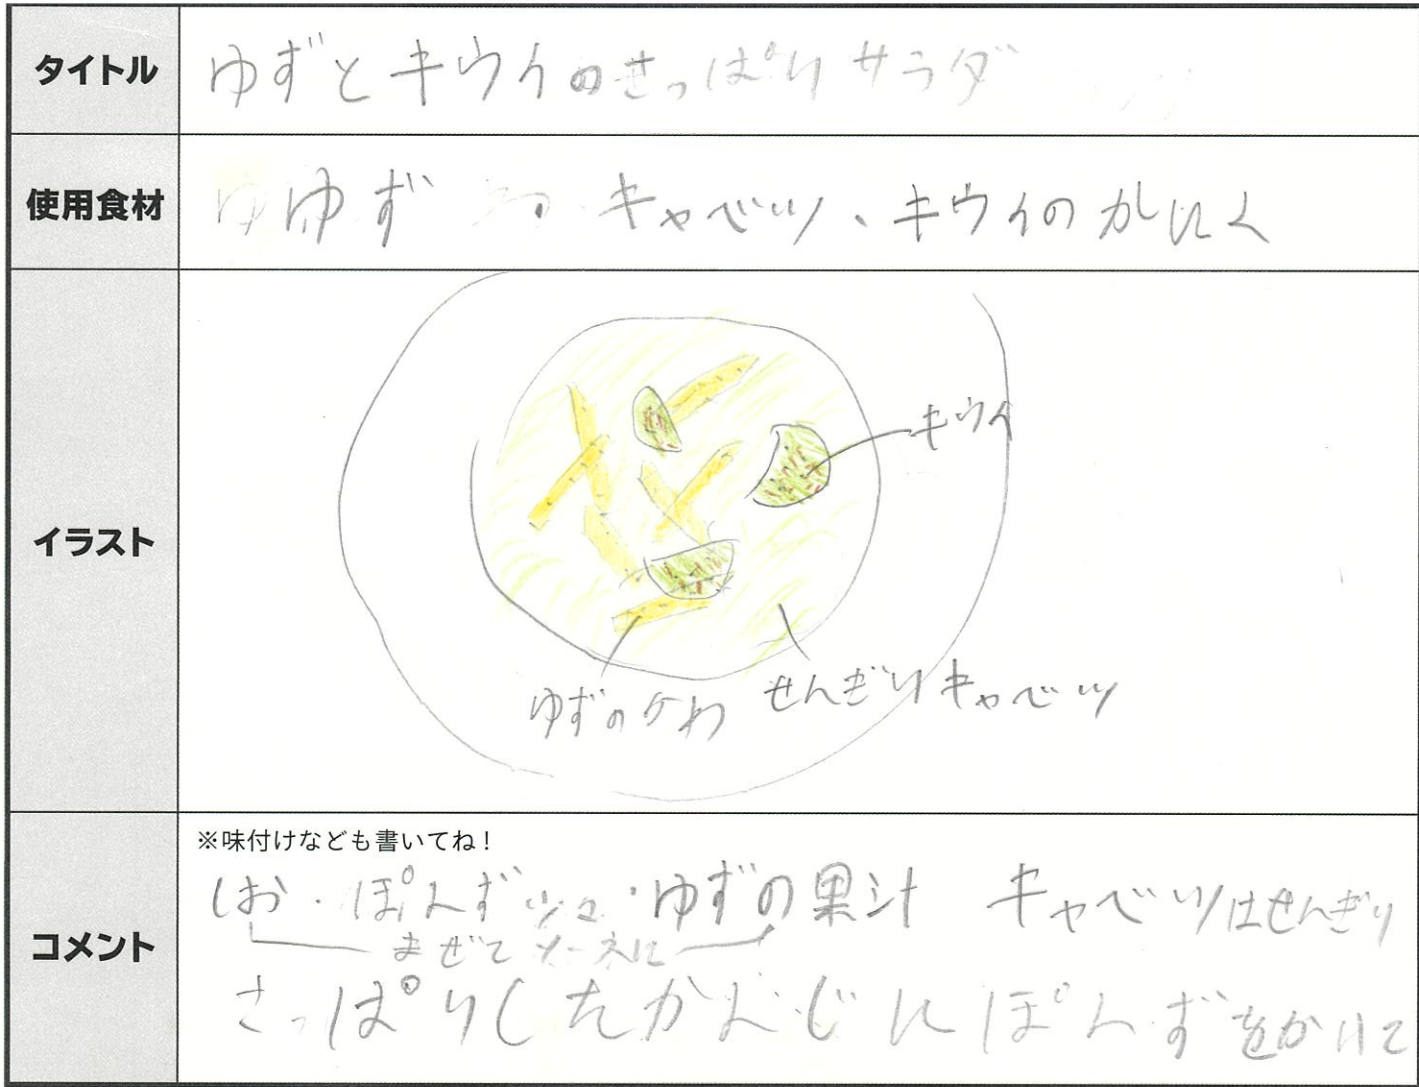 タイトル
ゆずとキウイのさっぱりサラダ
使用食材
ゆず キャベツ、キウイのかにく
イラスト
キウイ
ゆずのかわ
せんぎりキャベツ
コメント
※味付けなども書いてね！
しお・ぽんず・ゆずの果汁 キャベツはせんぎり
まぜてソースに
さっぱりしたかんじにぽんずをかけて